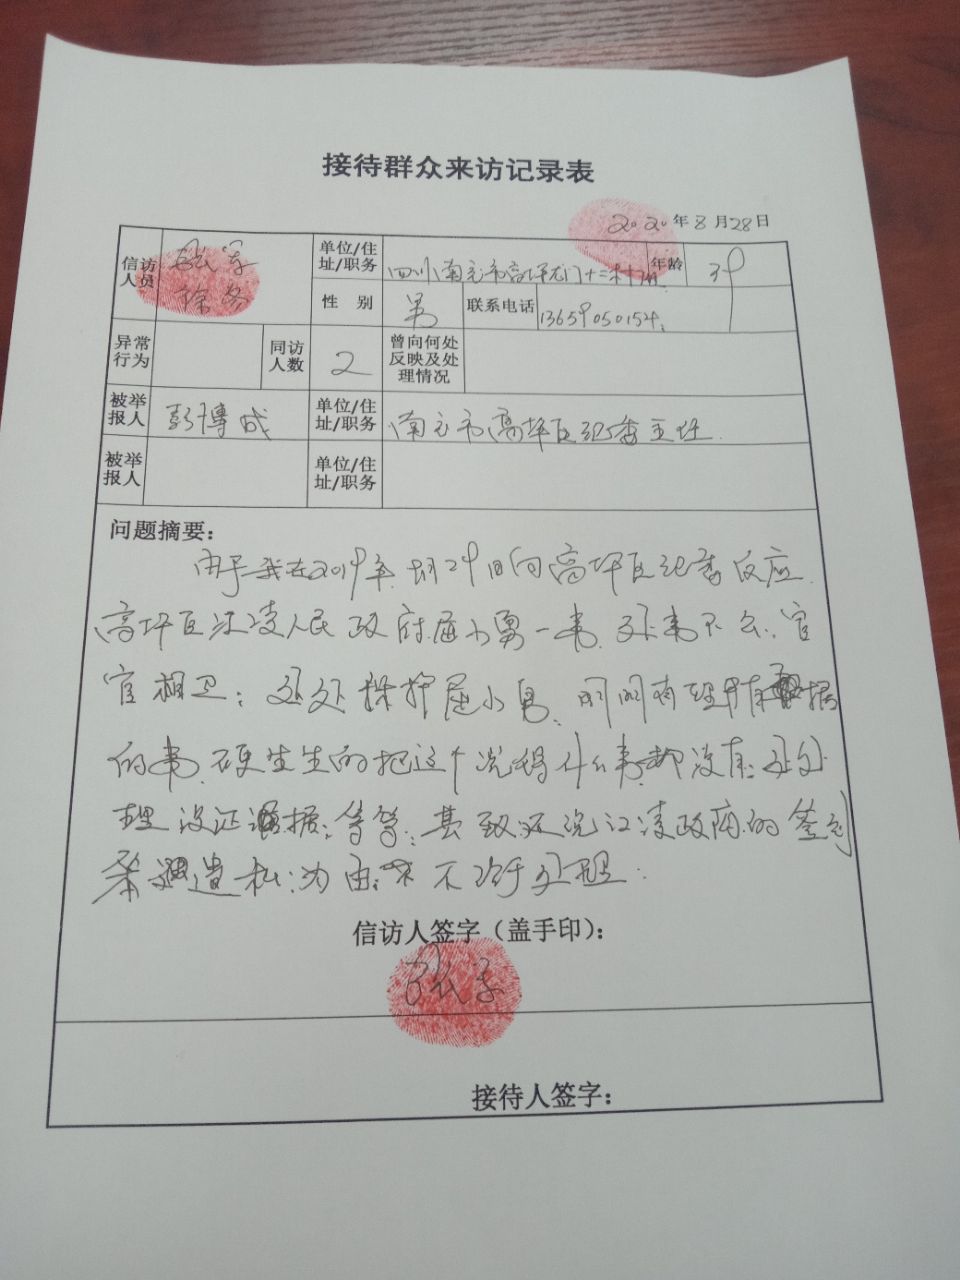 接待群众来访记录表
2020年8月28日
信访人员 单位/住址/职务 四川南充市高坪龙门十三村 年龄 39
性别 男 联系电话 13659050154
异常行为 同访人数 2 曾向何处反映及处理情况
被举报人 彭博成 单位/住址/职务 南充市高坪区纪委主任
被举报人 单位/住址/职务
问题摘要：
由于我在2019年 月29日向高坪区纪委反应
高坪区江凌人民政府屈小勇一事，处事不公，官
官相卫；处处保护屈小勇，明明有理有据
的事，硬生生的把这个说得什么事都没有，处处
理没证据；等等；甚致还说江凌政府的签到
为由 不给于处理．
信访人签字（盖手印）：
接待人签字：